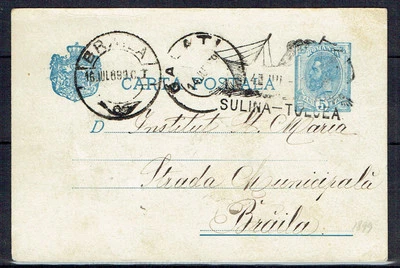 BRAILA
16 IUL 89
GALATI
CARTA POSTALA
SULINA—TULCEA
5
D Institut S. Maria
Strada Municipală
Brăila
1899